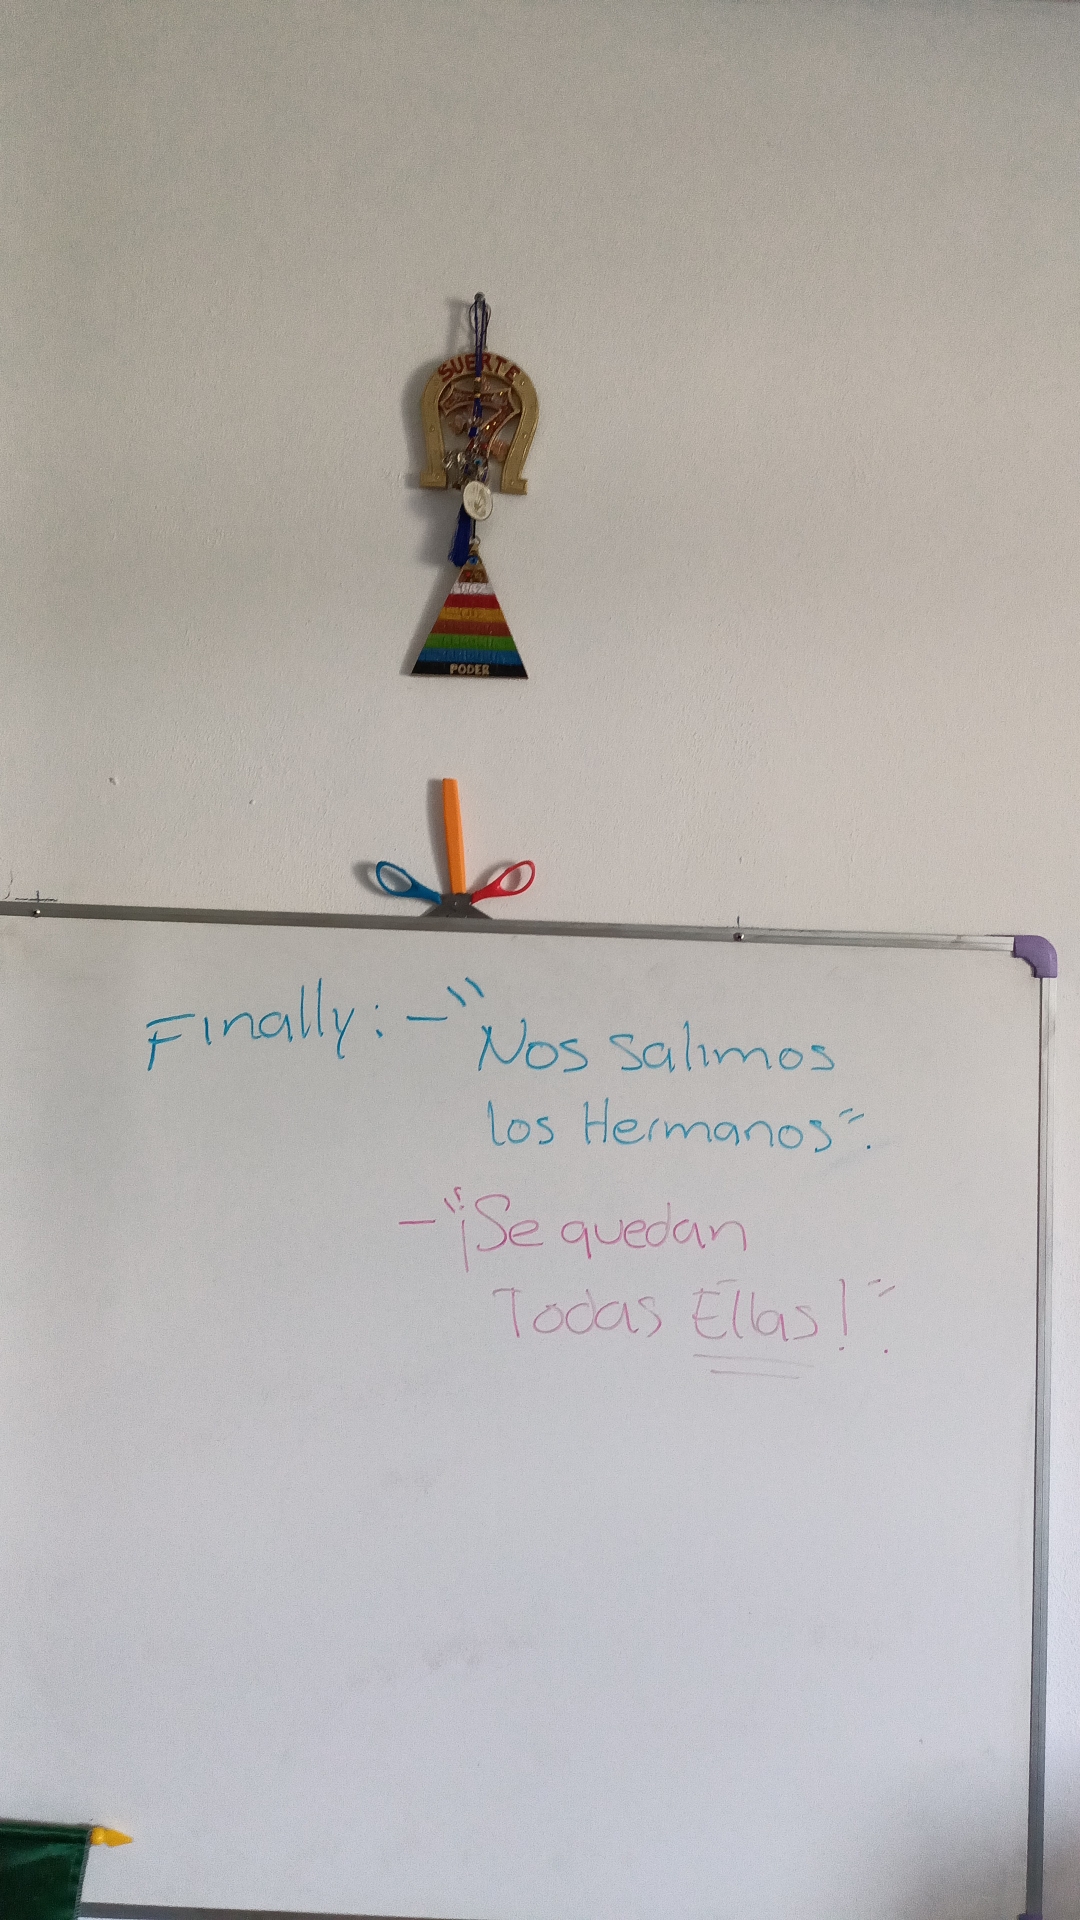 SUERTE
7
PODER
Finally: - "Nos salimos
los Hermanos".
- "¡Se quedan
Todas Ellas!".